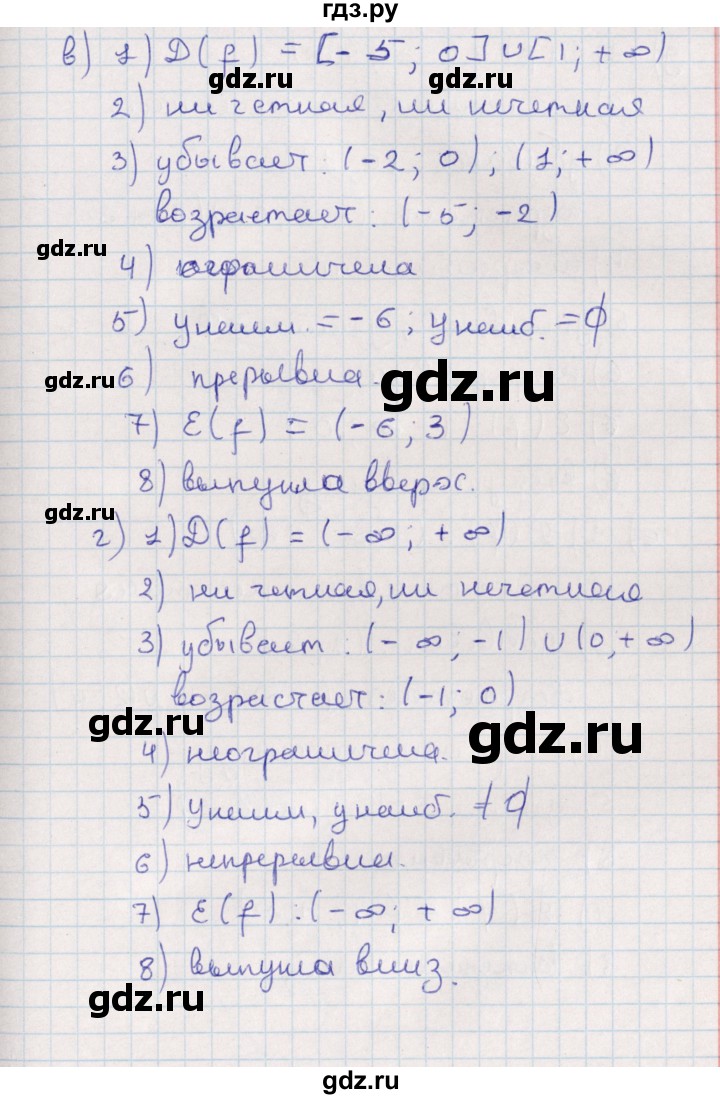 гдз.ру
в) 1) D(f) = [-5; 0] ∪ [1; +∞)
gdz.ru gdz.ru
2) ни четная, ни нечетная
3) убывает: (-2; 0); (1; +∞)
возрастает: (-5; -2)
gdz.ru gdz.ru
4) ограничена
5) y наим. = -6; y наиб. = ∅
gdz.ru
6) прерывна. gdz.ru
7) E(f) = (-6; 3)
8) выпукла вверх.
gdz.ru
г) 1) D(f) = (-∞; +∞)
2) ни четная, ни нечетная
3) убывает: (-∞; -1) ∪ (0, +∞)
возрастает: (-1; 0)
gdz.ru gdz.ru
4) неограничена.
5) y наим, y наиб. = ∅
6) непрерывна.
7) E(f): (-∞; +∞)
8) выпукла вниз.
gdz.ru
gdz.ru